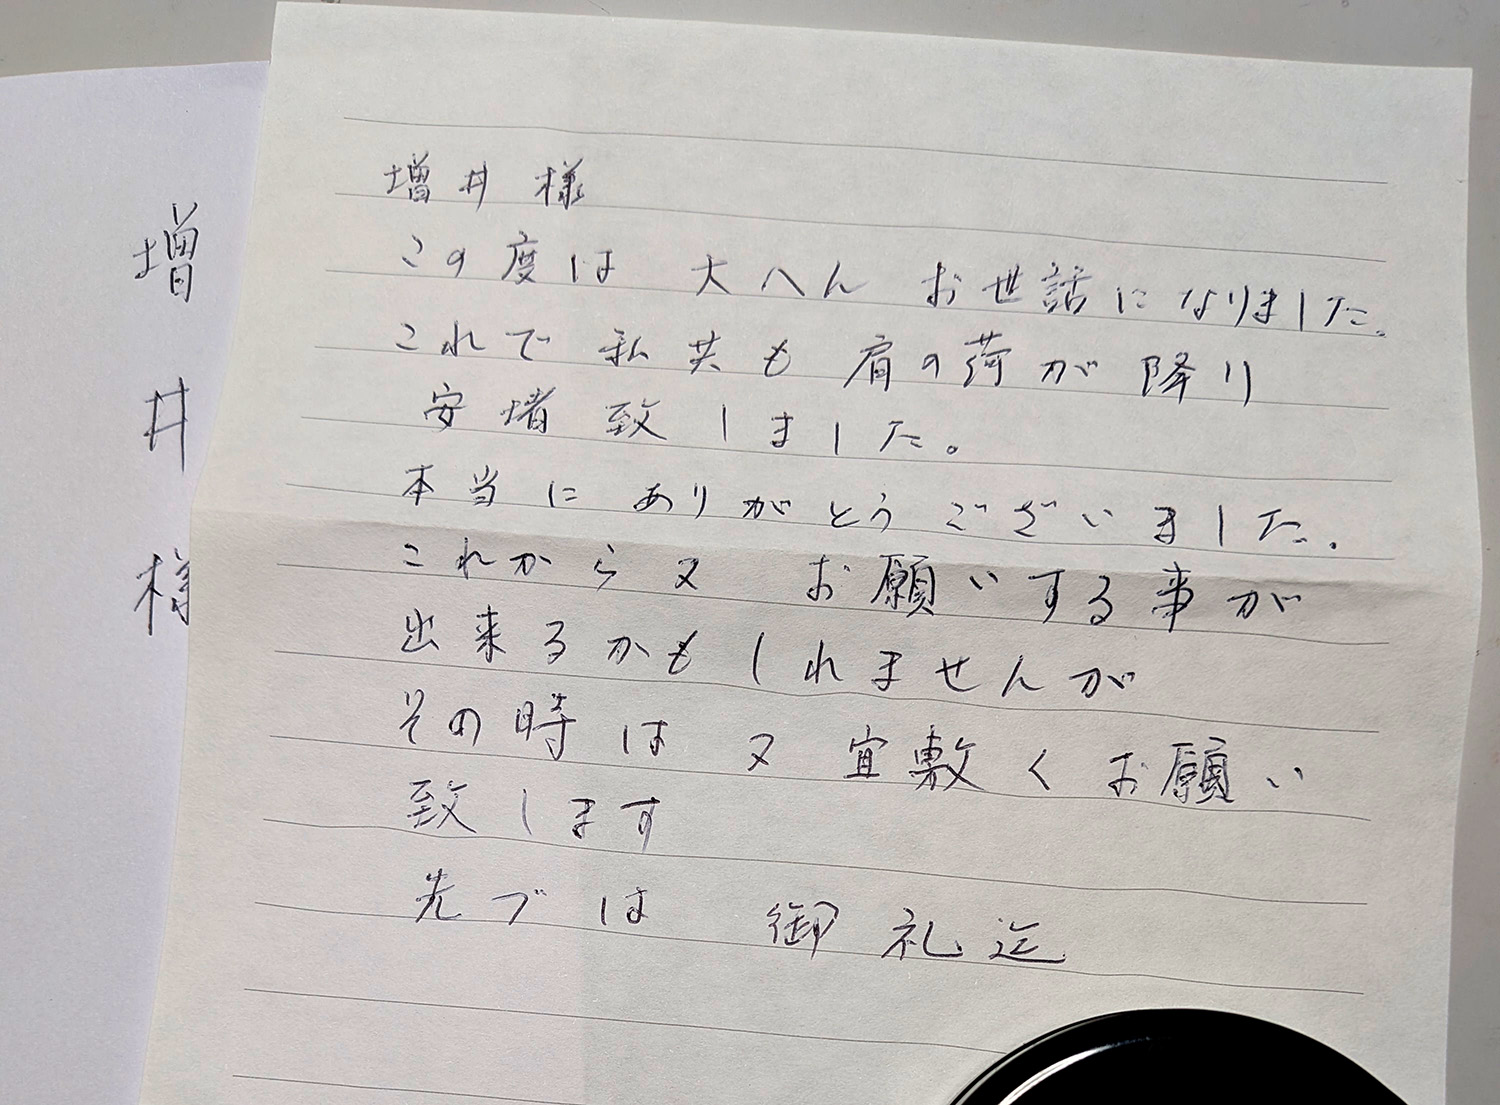 増井様
増井様
この度は 大へん お世話になりました。
これで 私共も 肩の荷が 降り
安堵致しました。
本当に ありがとうございました。
これから又 お願いする事が
出来るかもしれませんが
その時は 又 宜敷くお願い
致します
先づは 御礼迄